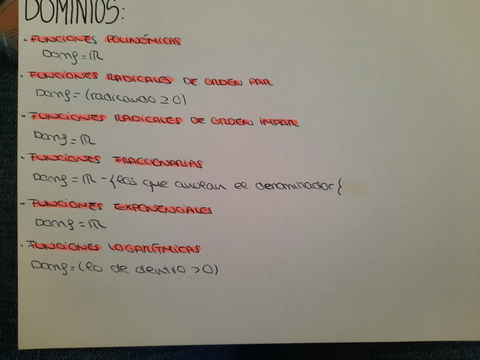 DOMINIOS:
· FUNCIONES POLINÓMICAS
Domf = ℝ
· FUNCIONES RADICALES DE ORDEN PAR
Domf = (radicando ≥ 0)
· FUNCIONES RADICALES DE ORDEN IMPAR
Domf = ℝ
· FUNCIONES FRACCIONARIAS
Domf = ℝ - {los que anulan el denominador{
· FUNCIONES EXPONENCIALES
Domf = ℝ
· FUNCIONES LOGARÍTMICAS
Domf = (lo de dentro > 0)